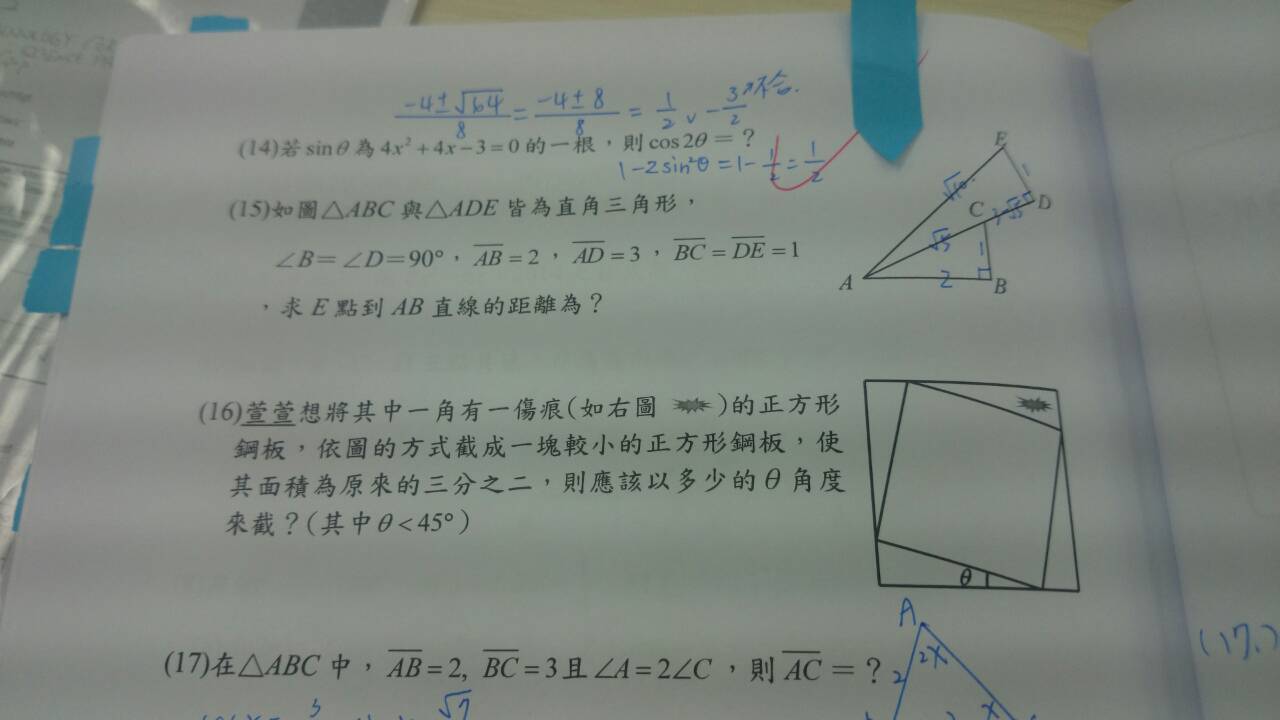 -4±√64/8 = -4±8/8 = 1/2 v -3/2 不合.
(14)若 sinθ 為 4x²+4x-3=0 的一根,則 cos2θ=?
1-2sin²θ=1-1/2=1/2
(15)如圖△ABC 與△ADE 皆為直角三角形,
∠B=∠D=90°,AB=2,AD=3,BC=DE=1
,求 E 點到 AB 直線的距離為?
E
√10
1
D
C
3-√5
√5
1
A
2
B
(16)萱萱想將其中一角有一傷痕(如右圖 )的正方形
鋼板,依圖的方式截成一塊較小的正方形鋼板,使
其面積為原來的三分之二,則應該以多少的 θ 角度
來截?(其中 θ<45°)
θ
(17)在△ABC 中,AB=2, BC=3且∠A=2∠C,則AC=?
A
2x
2
x
√7
(17.)